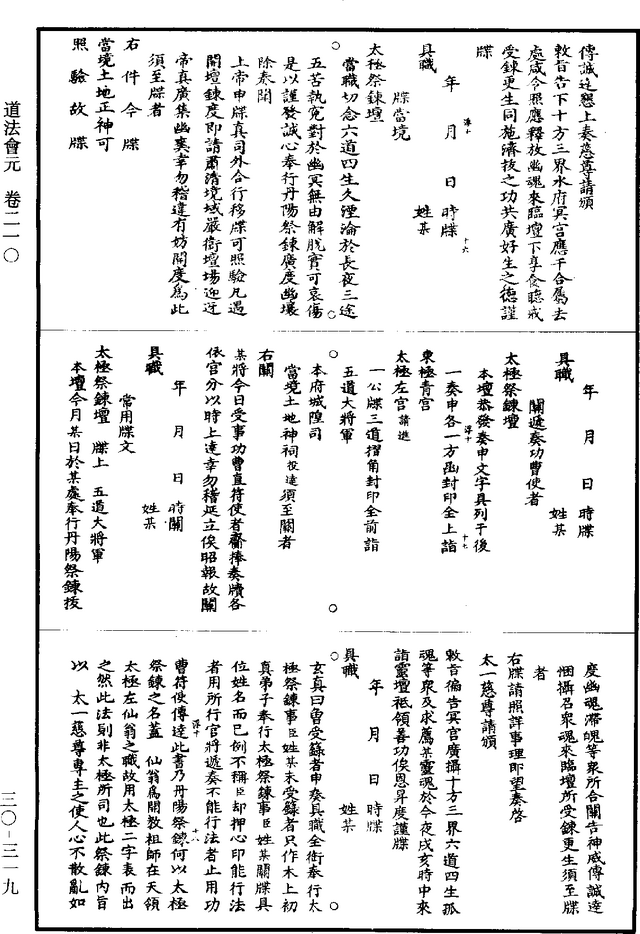 道法會元　卷二一〇
傳誠達懇上奏慈尊請頒
敕旨告下十方三界水府冥官應干合屬去
處咸令照應釋放幽魂來臨壇下享食聽戒
受鍊更生同施濟拔之功共廣好生之德謹
牒
浮十
年　月　日　時牒
十六
具職　姓某
牒當境
太極祭鍊壇
當職切念六道四生久湮淪於長夜三途
五苦執冤對於幽冥無由解脫實可哀傷
是以謹發誠心奉行丹陽祭鍊廣度幽壤
除奏聞
上帝申牒真司外合行移牒可照驗凡遇
開壇鍊度即請肅清境域嚴衛壇場迎迓
帝真廣集幽爽幸勿稽違有妨開度為此
須至牒者
右件令牒
當境土地正神可
照驗故牒
年　月　日　時牒
具職　姓某
關遞奏功曹使者
太極祭鍊壇
本壇恭發奏申文字具列于後
浮十
一奏申各一方函封印全上詣
十七
東極青宮
太極左宮請進
一公牒三道摺角封印全前詣
五道大將軍
本府城隍司
當境土地神祠投達須至關者
右關
某將今日受事功曹直符使者齎捧奏牘各
依官分以時上達幸勿稽延立俟昭報故關
年　月　日　時關
具職　姓某
常用牒文
太極祭鍊壇　牒上　五道大將軍
本壇今月某日於某處奉行丹陽祭鍊拔
度幽魂滯魄等眾所合關告神威傳誠達
悃攝召眾魂來臨壇所受鍊更生須至牒
者
右牒請照詳事理即望奏啓
太一慈尊請頒
敕旨徧告冥官廣攝十方三界六道四生孤
魂等眾及求薦某靈魂於今夜戌亥時中來
詣靈壇祗領善功俟恩昇度謹牒
年　月　日　時牒
具職　姓某
玄真曰曾受籙者申奏具職全銜奉行太
極祭鍊事臣姓某未受籙者只作木上初
真弟子奉行太極祭鍊事臣姓某關牒具
位姓名而已例不稱臣却押心印能行法
者用所行官將遞奏不能行法者止用功
浮十
曹符使傳達此書乃丹陽祭鍊何以太極
十八
祭鍊之名蓋　仙翁為開教祖師在天領
太極左仙翁之職故用太極二字表而出
之然此法則非太極所司也此祭鍊內旨
以　太一慈尊專主之使人心不散亂如
三〇－三一九